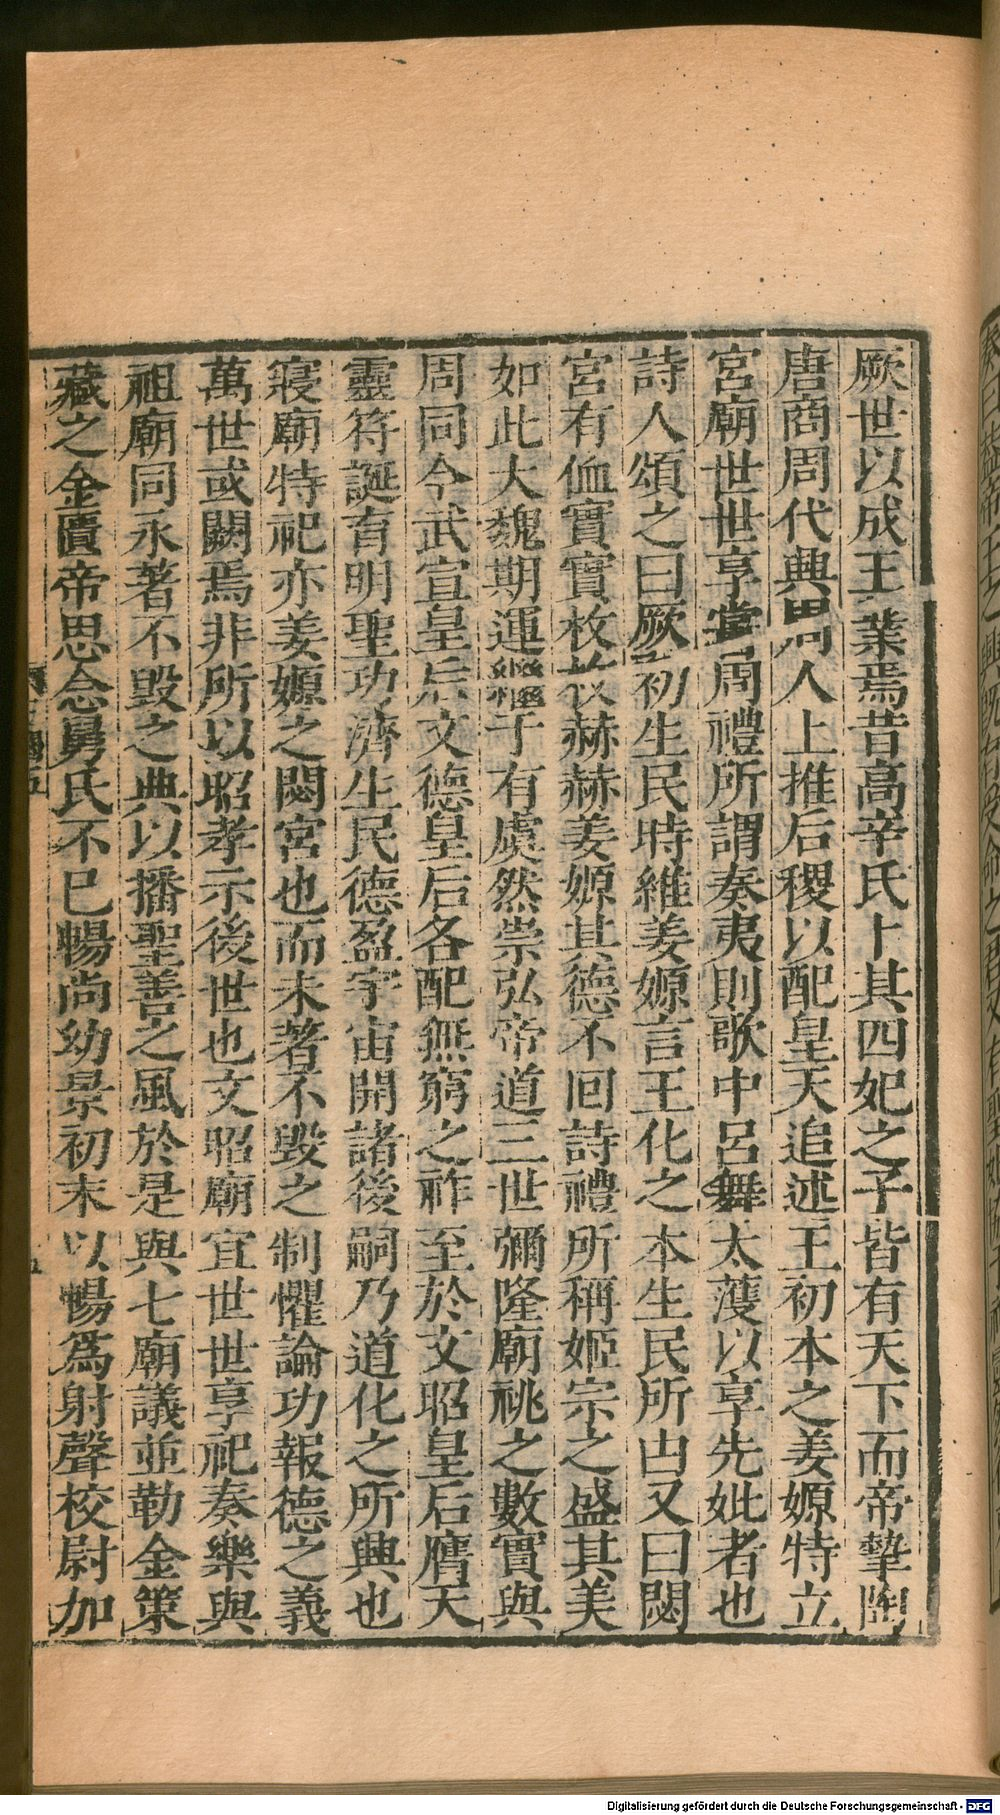 厥世以成王業焉昔高辛氏卜其四妃之子皆有天下而帝摯陶
唐商周代興周人上推后稷以配皇天追述王初本之姜嫄特立
宮廟世世享嘗周禮所謂奏夷則歌中呂舞太濩以享先妣者也
詩人頌之曰厥初生民時維姜嫄言王化之本生民所由又曰閟
宮有侐實實枚枚赫赫姜嫄其德不回詩禮所稱姬宗之盛其美
如此大魏期運繼于有虞然崇弘帝道三世彌隆廟祧之數實與
周同今武宣皇后文德皇后各配無窮之祚至於文昭皇后膺天
靈符誕育明聖功濟生民德盈宇宙開諸後嗣乃道化之所興也
寢廟特祀亦姜嫄之閟宮也而未著不毀之制懼論功報德之義
萬世或闕焉非所以昭孝示後世也文昭廟宜世世享祀奏樂與
祖廟同永著不毀之典以播聖善之風於是與七廟議並勒金策
藏之金匱帝思念舅氏不已暢尚幼景初末以暢爲射聲校尉加
Digitalisierung gefördert durch die Deutsche Forschungsgemeinschaft - DFG